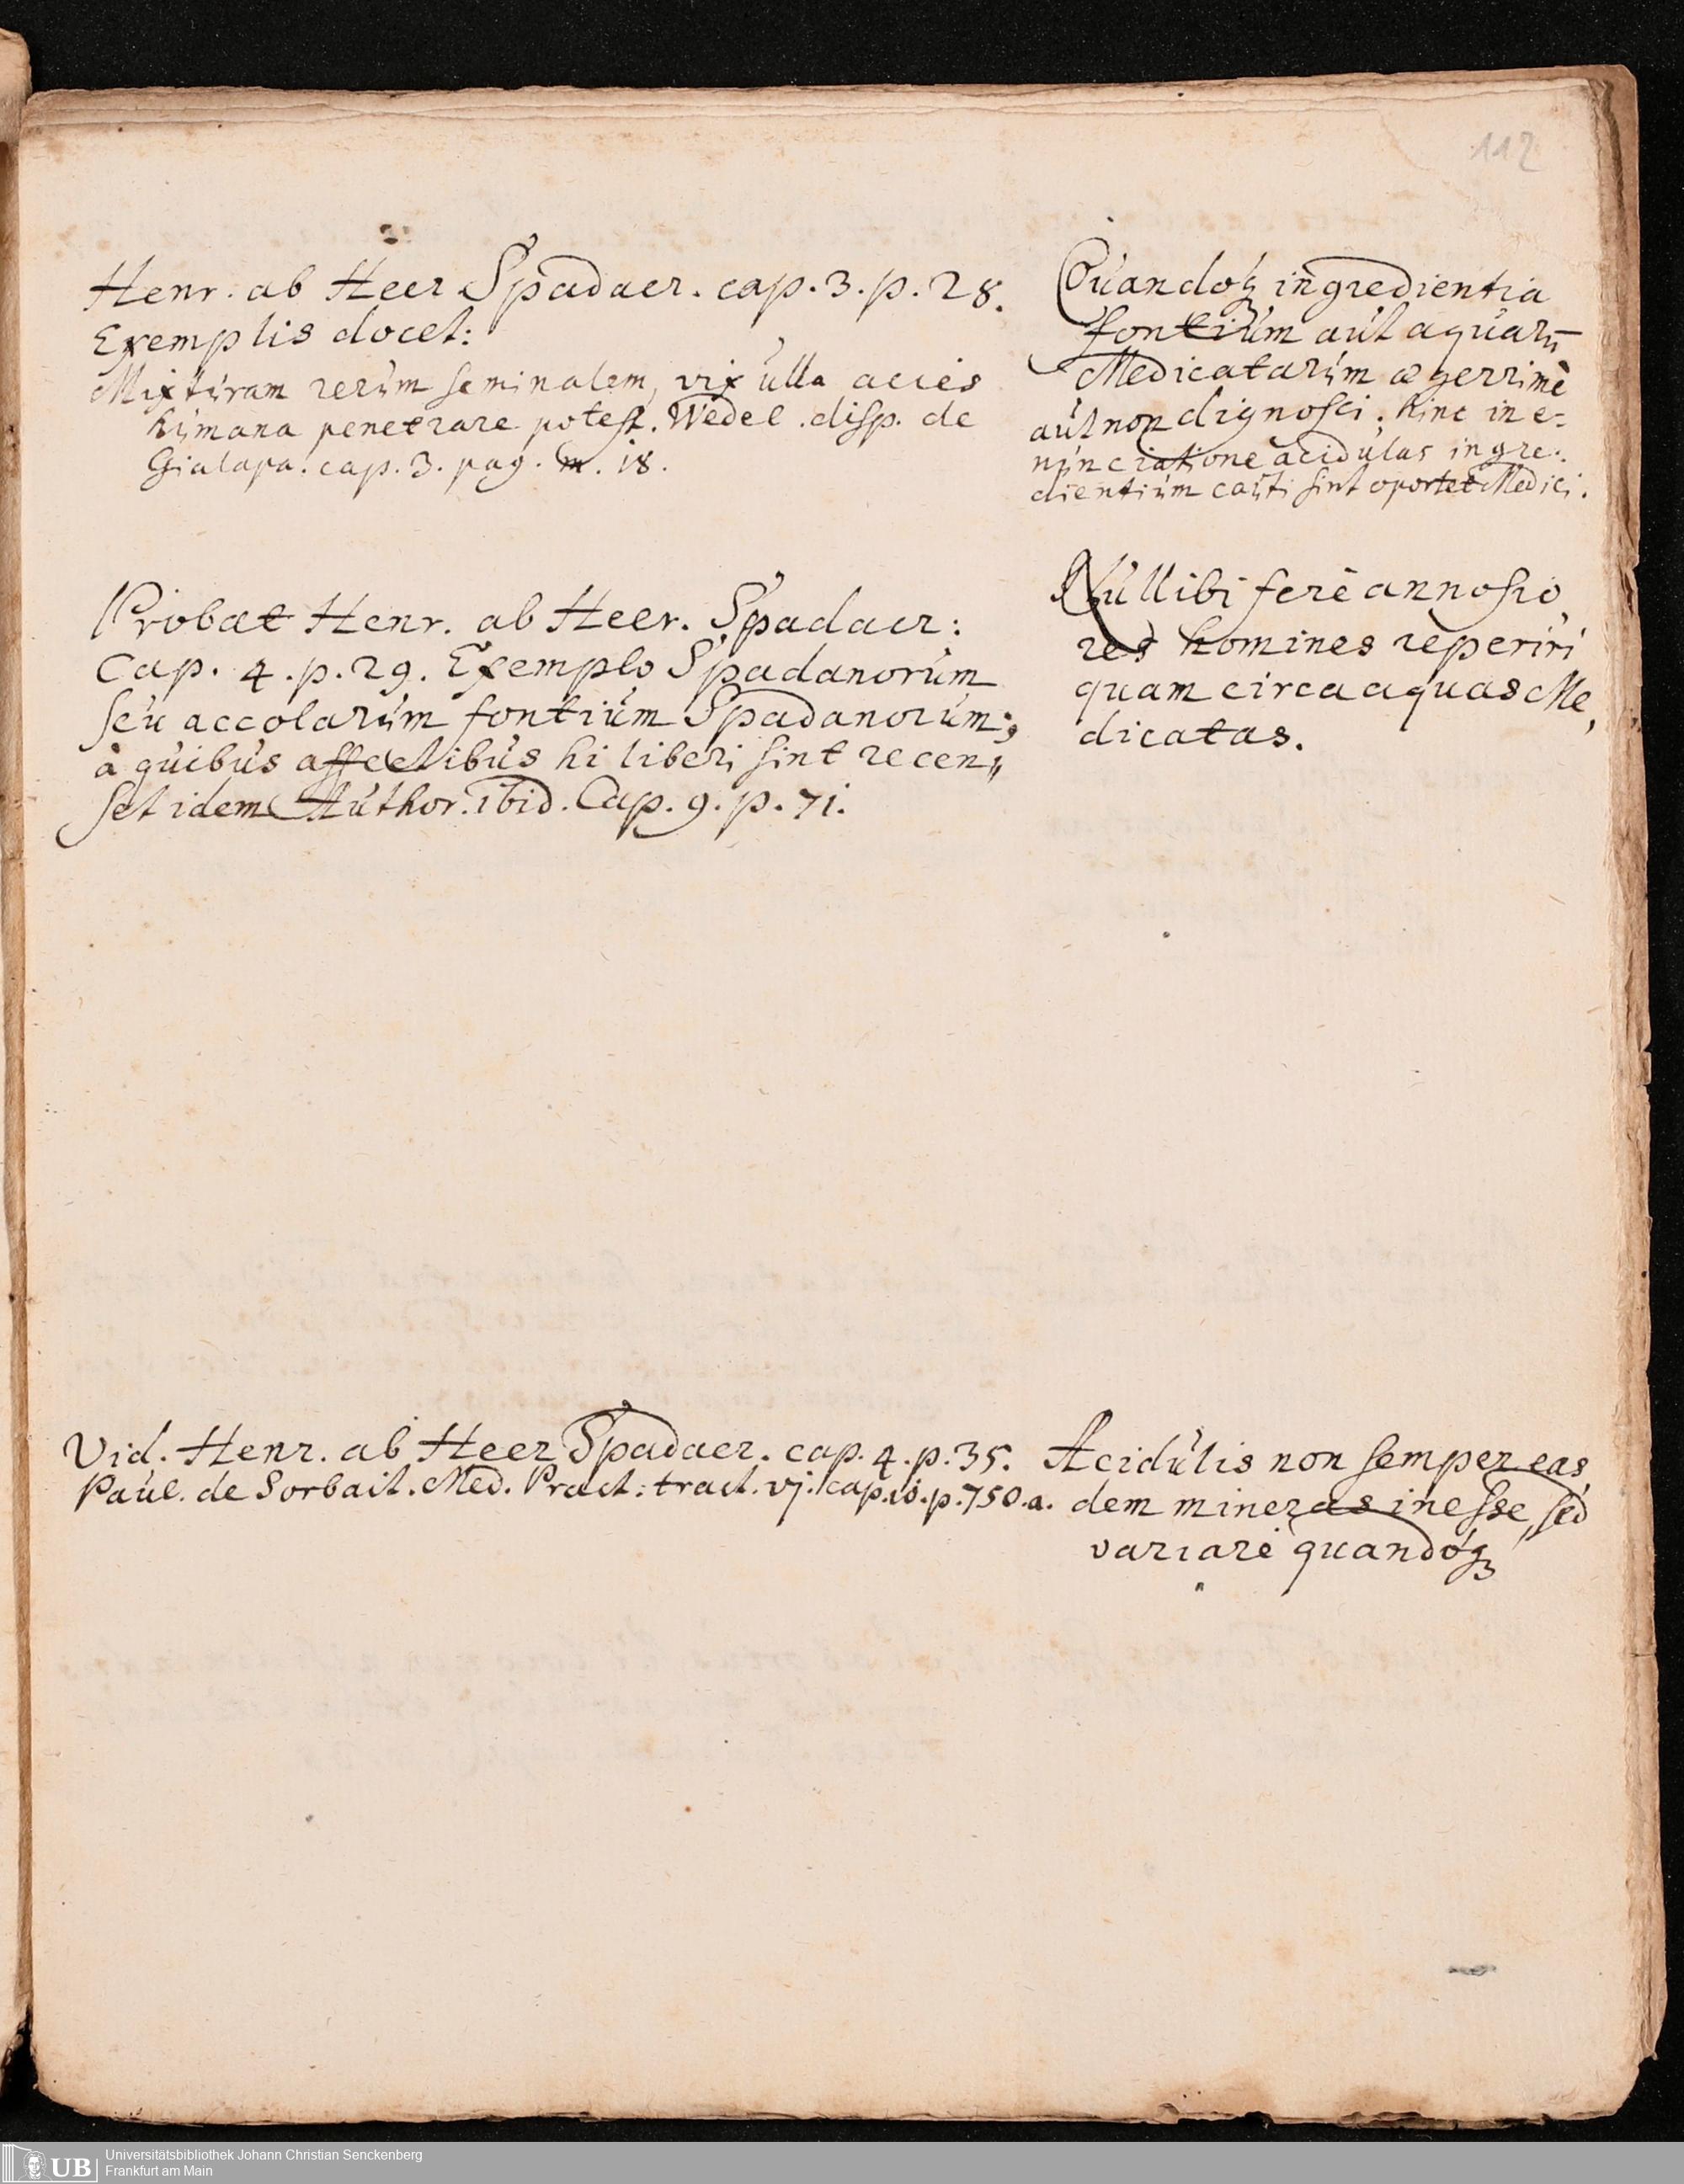 112
Henr. ab Heer Spadacr. cap. 3. p. 28.
Exemplis docet:
Mixturam rerum seminalem, vix ulla acies
humana penetrare potest. Wedel. disp. de
Gialapa. cap. 3. pag. m. 18.
Quandoq; ingredientia
fontium aut aquarū
Medicatarum ægerrimè
aut non dignosci. hinc in e-
nunciatione acidulas ingre-
dientium cauti sint oportet Medici.
Probat Henr. ab Heer. Spadacr:
Cap. 4. p. 29. Exemplo Spadanorum
seu accolarum fontium Spadanorum;
à quibus affectibus hi liberi sint recen„
set idem Author. ibid. Cap. 9. p. 71.
Nullibi ferè annosio,
res homines reperiri
quam circa aquas Me,
dicatas.
Vid. Henr. ab Heer Spadacr. cap. 4. p. 35.
Paul. de Sorbait. Med. Pract: tract. vj. cap. 10. p. 750. a.
Acidulis non semper eas,
dem mineras inesse, sed
variare quandoq;
UB
Universitätsbibliothek Johann Christian Senckenberg
Frankfurt am Main